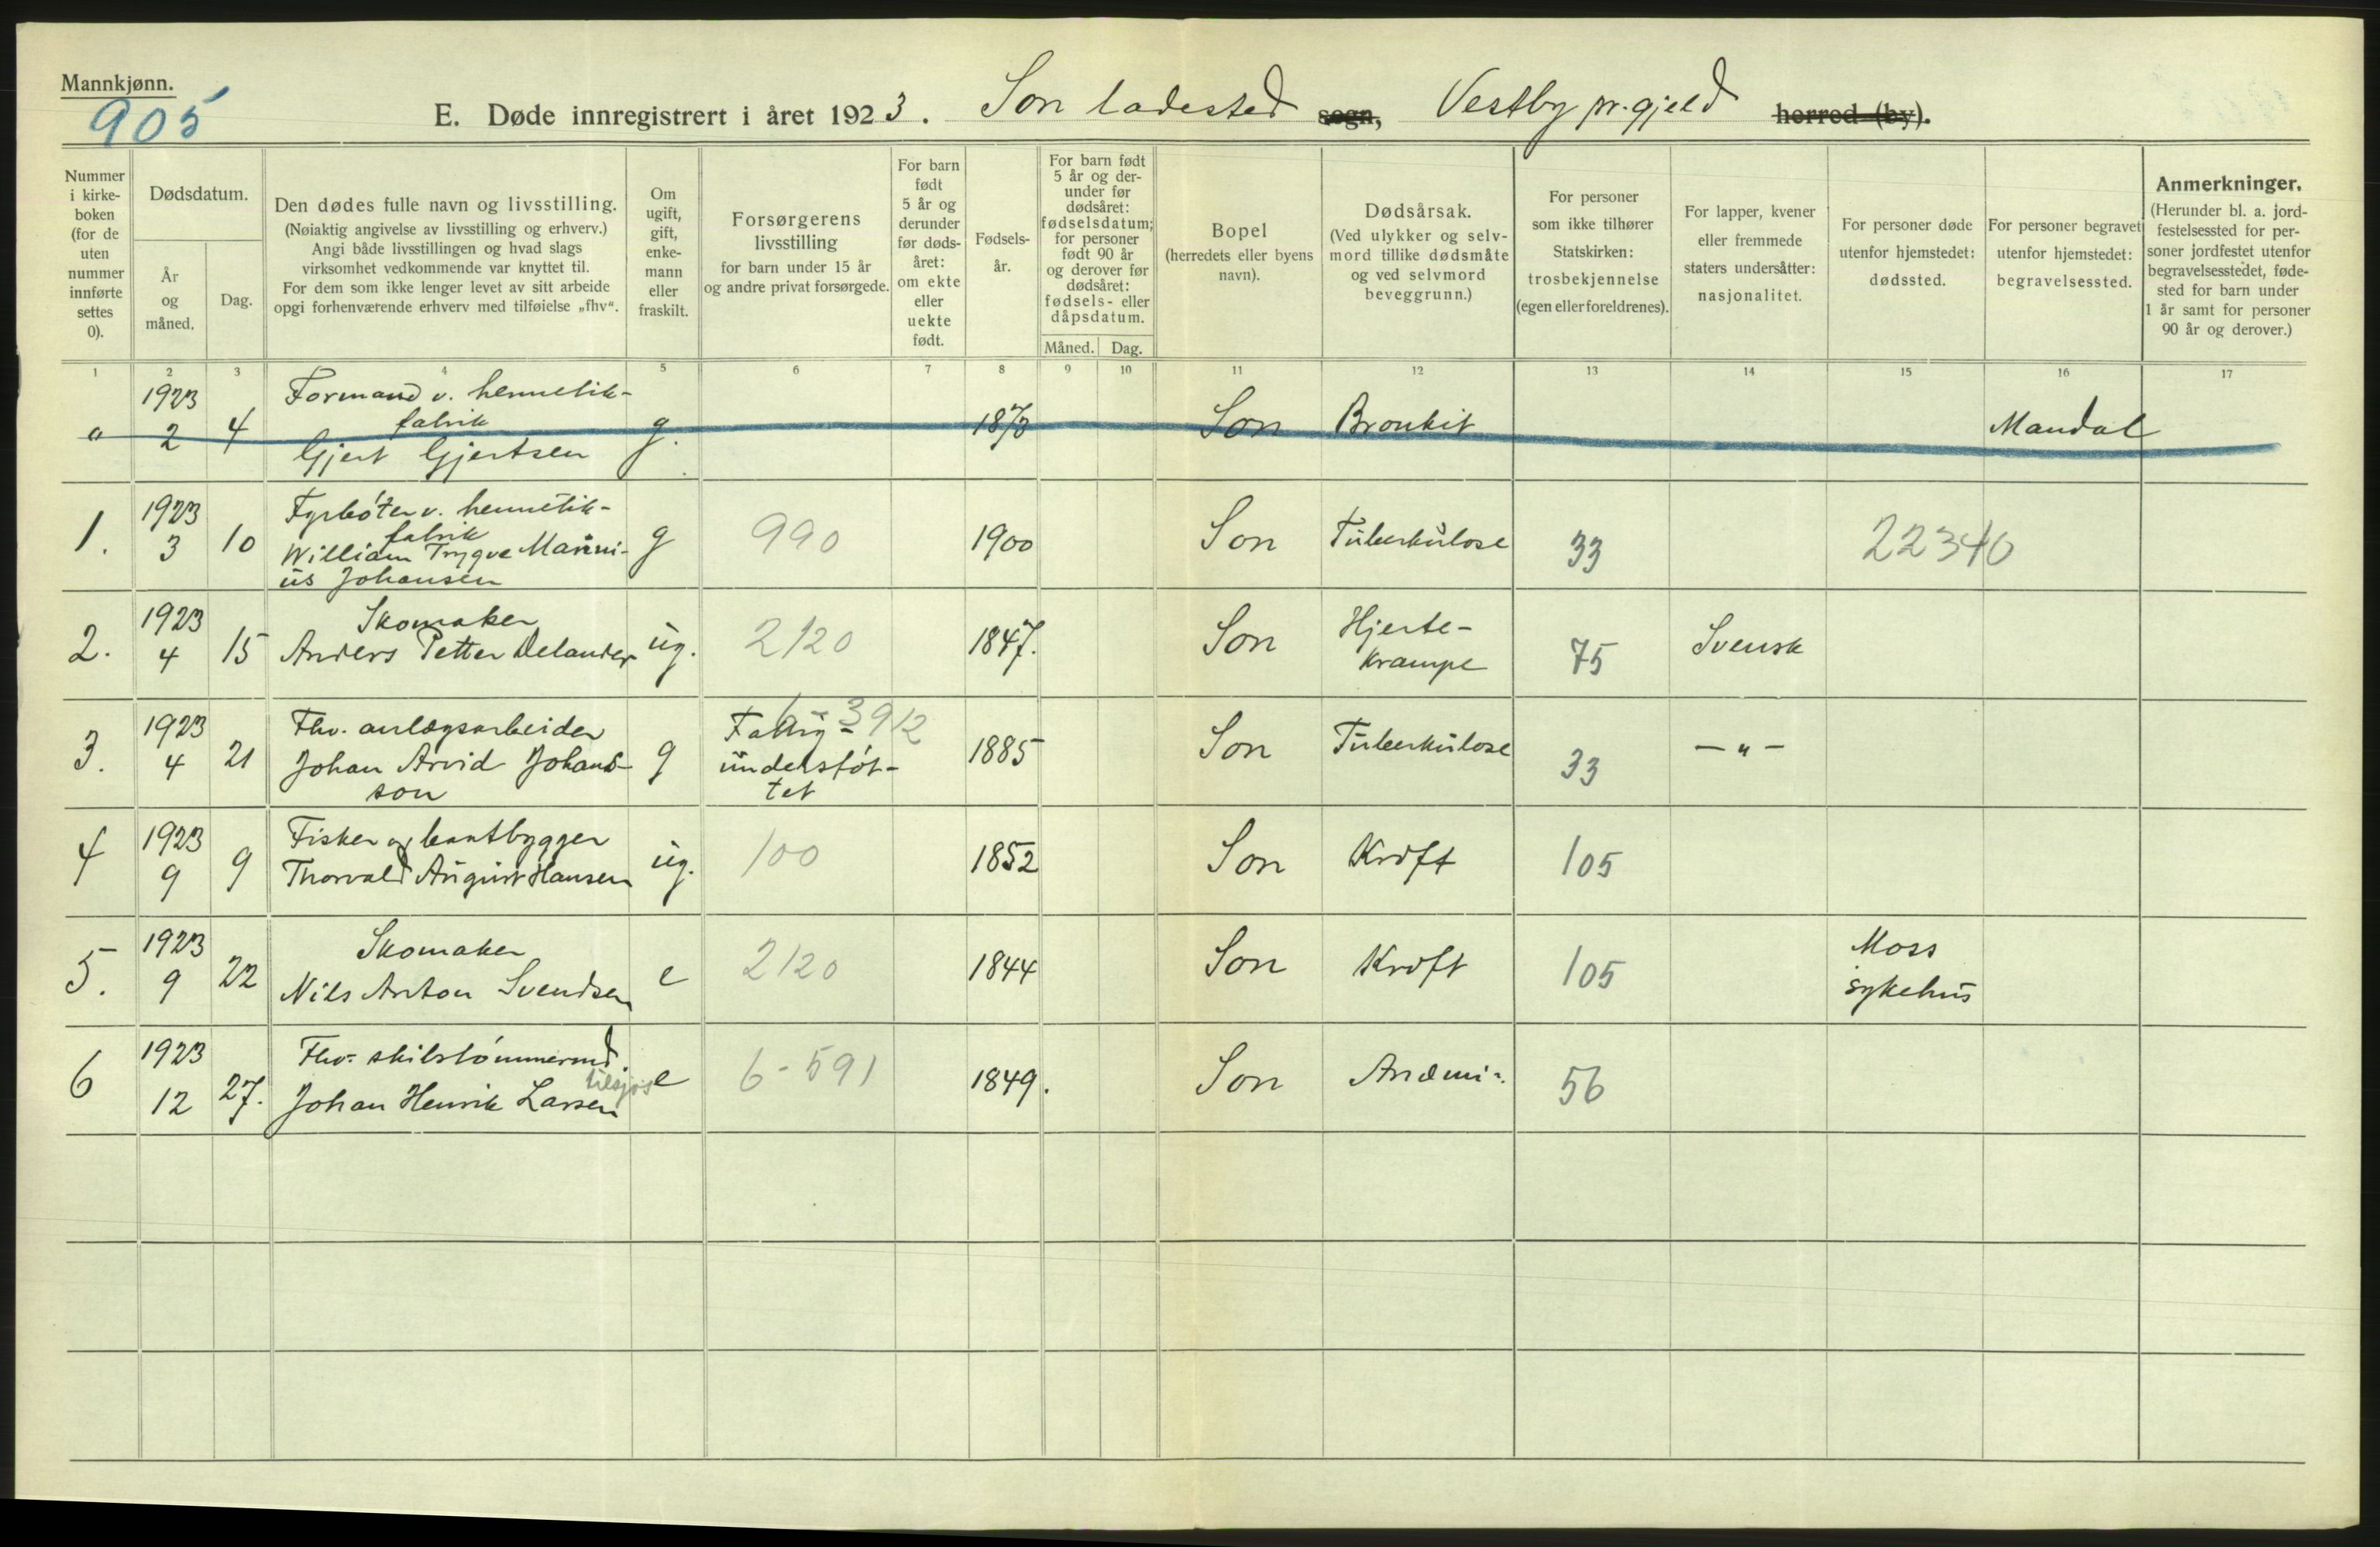 Mannkjønn.
905
E. Døde innregistrert i året 1923. Son ladested sogn, Vestby pr.gjeld herred (by).
Nummer i kirke-boken (for de uten nummer innførte settes 0).
Dødsdatum.
År og måned.
Dag.
Den dødes fulle navn og livsstilling.
(Nøiaktig angivelse av livsstilling og erhverv.)
Angi både livsstillingen og hvad slags
virksomhet vedkommende var knyttet til.
For dem som ikke lenger levet av sitt arbeide
opgi forhenværende erhverv med tilføielse „fhv“.
Om ugift, gift, enke-mann eller fraskilt.
Forsørgerens livsstilling
for barn under 15 år
og andre privat forsørgede.
For barn født 5 år og derunder før døds-året: om ekte eller uekte født.
Fødsels-år.
For barn født 5 år og der-under før dødsåret: fødselsdatum; for personer født 90 år og derover før dødsåret: fødsels- eller dåpsdatum.
Måned. Dag.
Bopel
(herredets eller byens navn).
Dødsårsak.
(Ved ulykker og selv-mord tillike dødsmåte og ved selvmord beveggrunn.)
For personer som ikke tilhører Statskirken: trosbekjennelse (egen eller foreldrenes).
For lapper, kvener eller fremmede staters undersåtter: nasjonalitet.
For personer døde utenfor hjemstedet: dødssted.
For personer begravet utenfor hjemstedet: begravelsessted.
Anmerkninger.
(Herunder bl. a. jord-festelsessted for per-soner jordfestet utenfor begravelsesstedet, føde-sted for barn under 1 år samt for personer 90 år og derover.)
1 2 3 4 5 6 7 8 9 10 11 12 13 14 15 16 17
1923 Formand v. hermetik-
fabrik
" 2 4 Gjert Gjertsen g. 1873 Son Bronkit Mandal
1923 Fyrbøter v. hermetik-
fabrik
1. 3 10 William Trygve Marini- g 990 1900 Son Tuberkulose 33 22340
us Johansen
1923 Skomaker
2. 4 15 Anders Petter Delander ug. 2120 1847. Son Hjerte- 75 Svensk
krampe
1923 Fhv. anlægsarbeider Fattig- 6-3912
3. 4 21 Johan Arvid Johans- g understøt- 1885 Son Tuberkulose 33 -"-
son tet
1923 Fisker og baatbygger
4 9 9 Thorvald August Hansen ug. 100 1852 Son Kræft 105
1923 Skomaker Moss
5. 9 22 Nils Anton Svendsen e 2120 1844 Son Kræft 105 sykehus
1923 Fhv. tilsjøs
6 12 27. Johan Henrik Larsen e 6-591 1849. Son Anæmi. 56